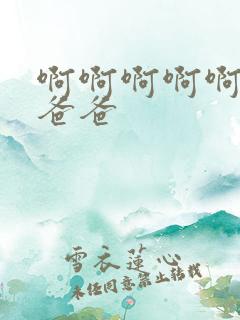 啊啊啊啊啊
爸爸
雪衣莲心
未经同意禁止转载